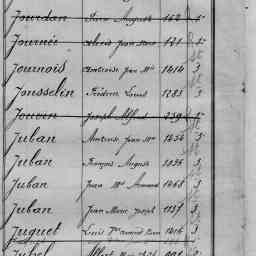 Jourdan Pierre August 162 5
Journée Alexis Jean Marie 121 5
Journois Ambroise Jean Mie 1414 3
Jousselin Frédéric Louis 1285 3
Jouvin Joseph Alfred 239 5
Juban Ambroise Jean Mie 1454 3
Juban François August 1036 3
Juban Jean Mie Armand 1468 3
Juban Jean Marie Joseph 1137 3
Juguet Louis 1416 3
Juhel Albert